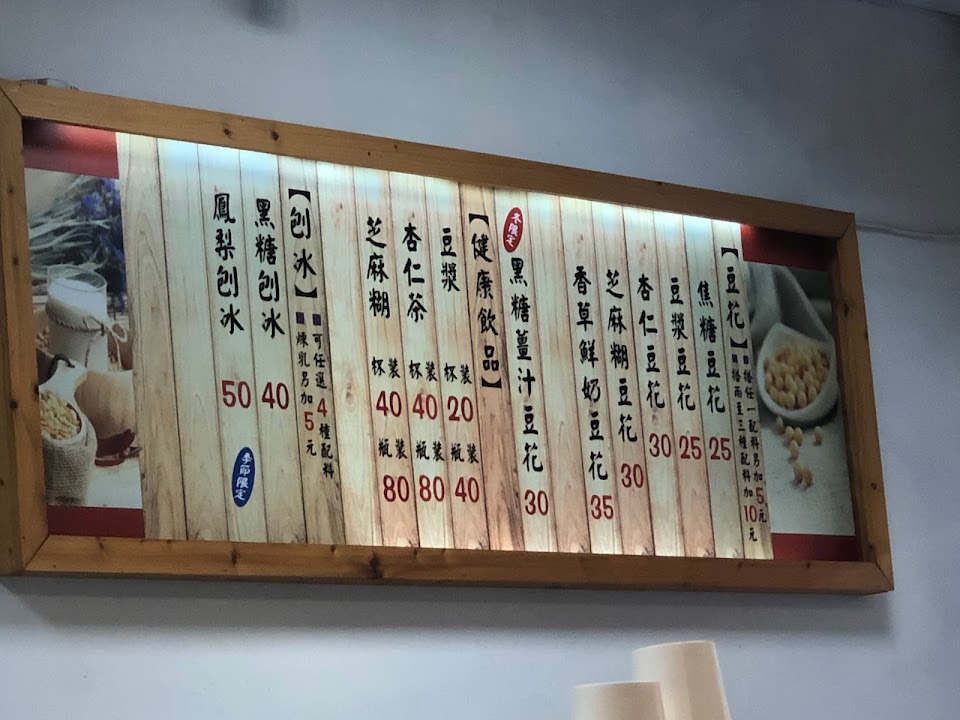 【豆花】
■搭任一配料另加5元
■搭兩至三種配料加10元
焦糖豆花 25
豆漿豆花 25
杏仁豆花 30
芝麻糊豆花 30
香草鮮奶豆花 35
冬限定
黑糖薑汁豆花 30
【健康飲品】
豆漿 杯裝20 瓶裝40
杏仁茶 杯裝40 瓶裝80
芝麻糊 杯裝40 瓶裝80
【刨冰】
■可任選4種配料
■煉乳另加5元
黑糖刨冰 40
鳳梨刨冰 50
季節限定